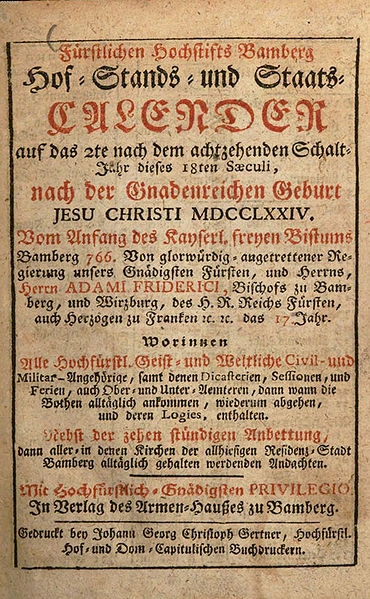 Fürstlichen Hochstifts Bamberg
Hof-Stands-und Staats-
CALENDER
auf das 2te nach dem achtzehenden Schalt-
Jahr dieses 18ten Sæculi,
nach der Gnadenreichen Geburt
JESU CHRISTI MDCCLXXIV.
Vom Anfang des Kayserl. freyen Bistums
Bamberg 766. Von glorwürdig-angetrettener Re-
gierung unsers Gnädigsten Fürsten, und Herrns,
Herrn ADAMI FRIDERICI, Bischofs zu Bam-
berg, und Wirzburg, des H. R. Reichs Fürsten,
auch Herzogen zu Franken ꝛc. ꝛc. das 17 Jahr.
Worinnen
Alle Hochfürstl. Geist-und Weltliche Civil-und
Militar-Angehörige, samt denen Dicasterien, Sessionen, und
Ferien, auch Ober-und Unter-Aemteren, dann wann die
Bothen alltäglich ankommen, wiederum abgehen,
und deren Logies, enthalten.
Nebst der zehen stündigen Anbettung,
dann aller-in denen Kirchen der allhiesigen Residenz-Stadt
Bamberg alltäglich gehalten werdenden Andachten.
Mit Hochfürstlich-Gnädigsten PRIVILEGIO.
In Verlag des Armen-Haußes zu Bamberg.
Gedruckt bey Johann Georg Christoph Gertner, Hochfürstl.
Hof-und Dom-Capitulischen Buchdruckern.